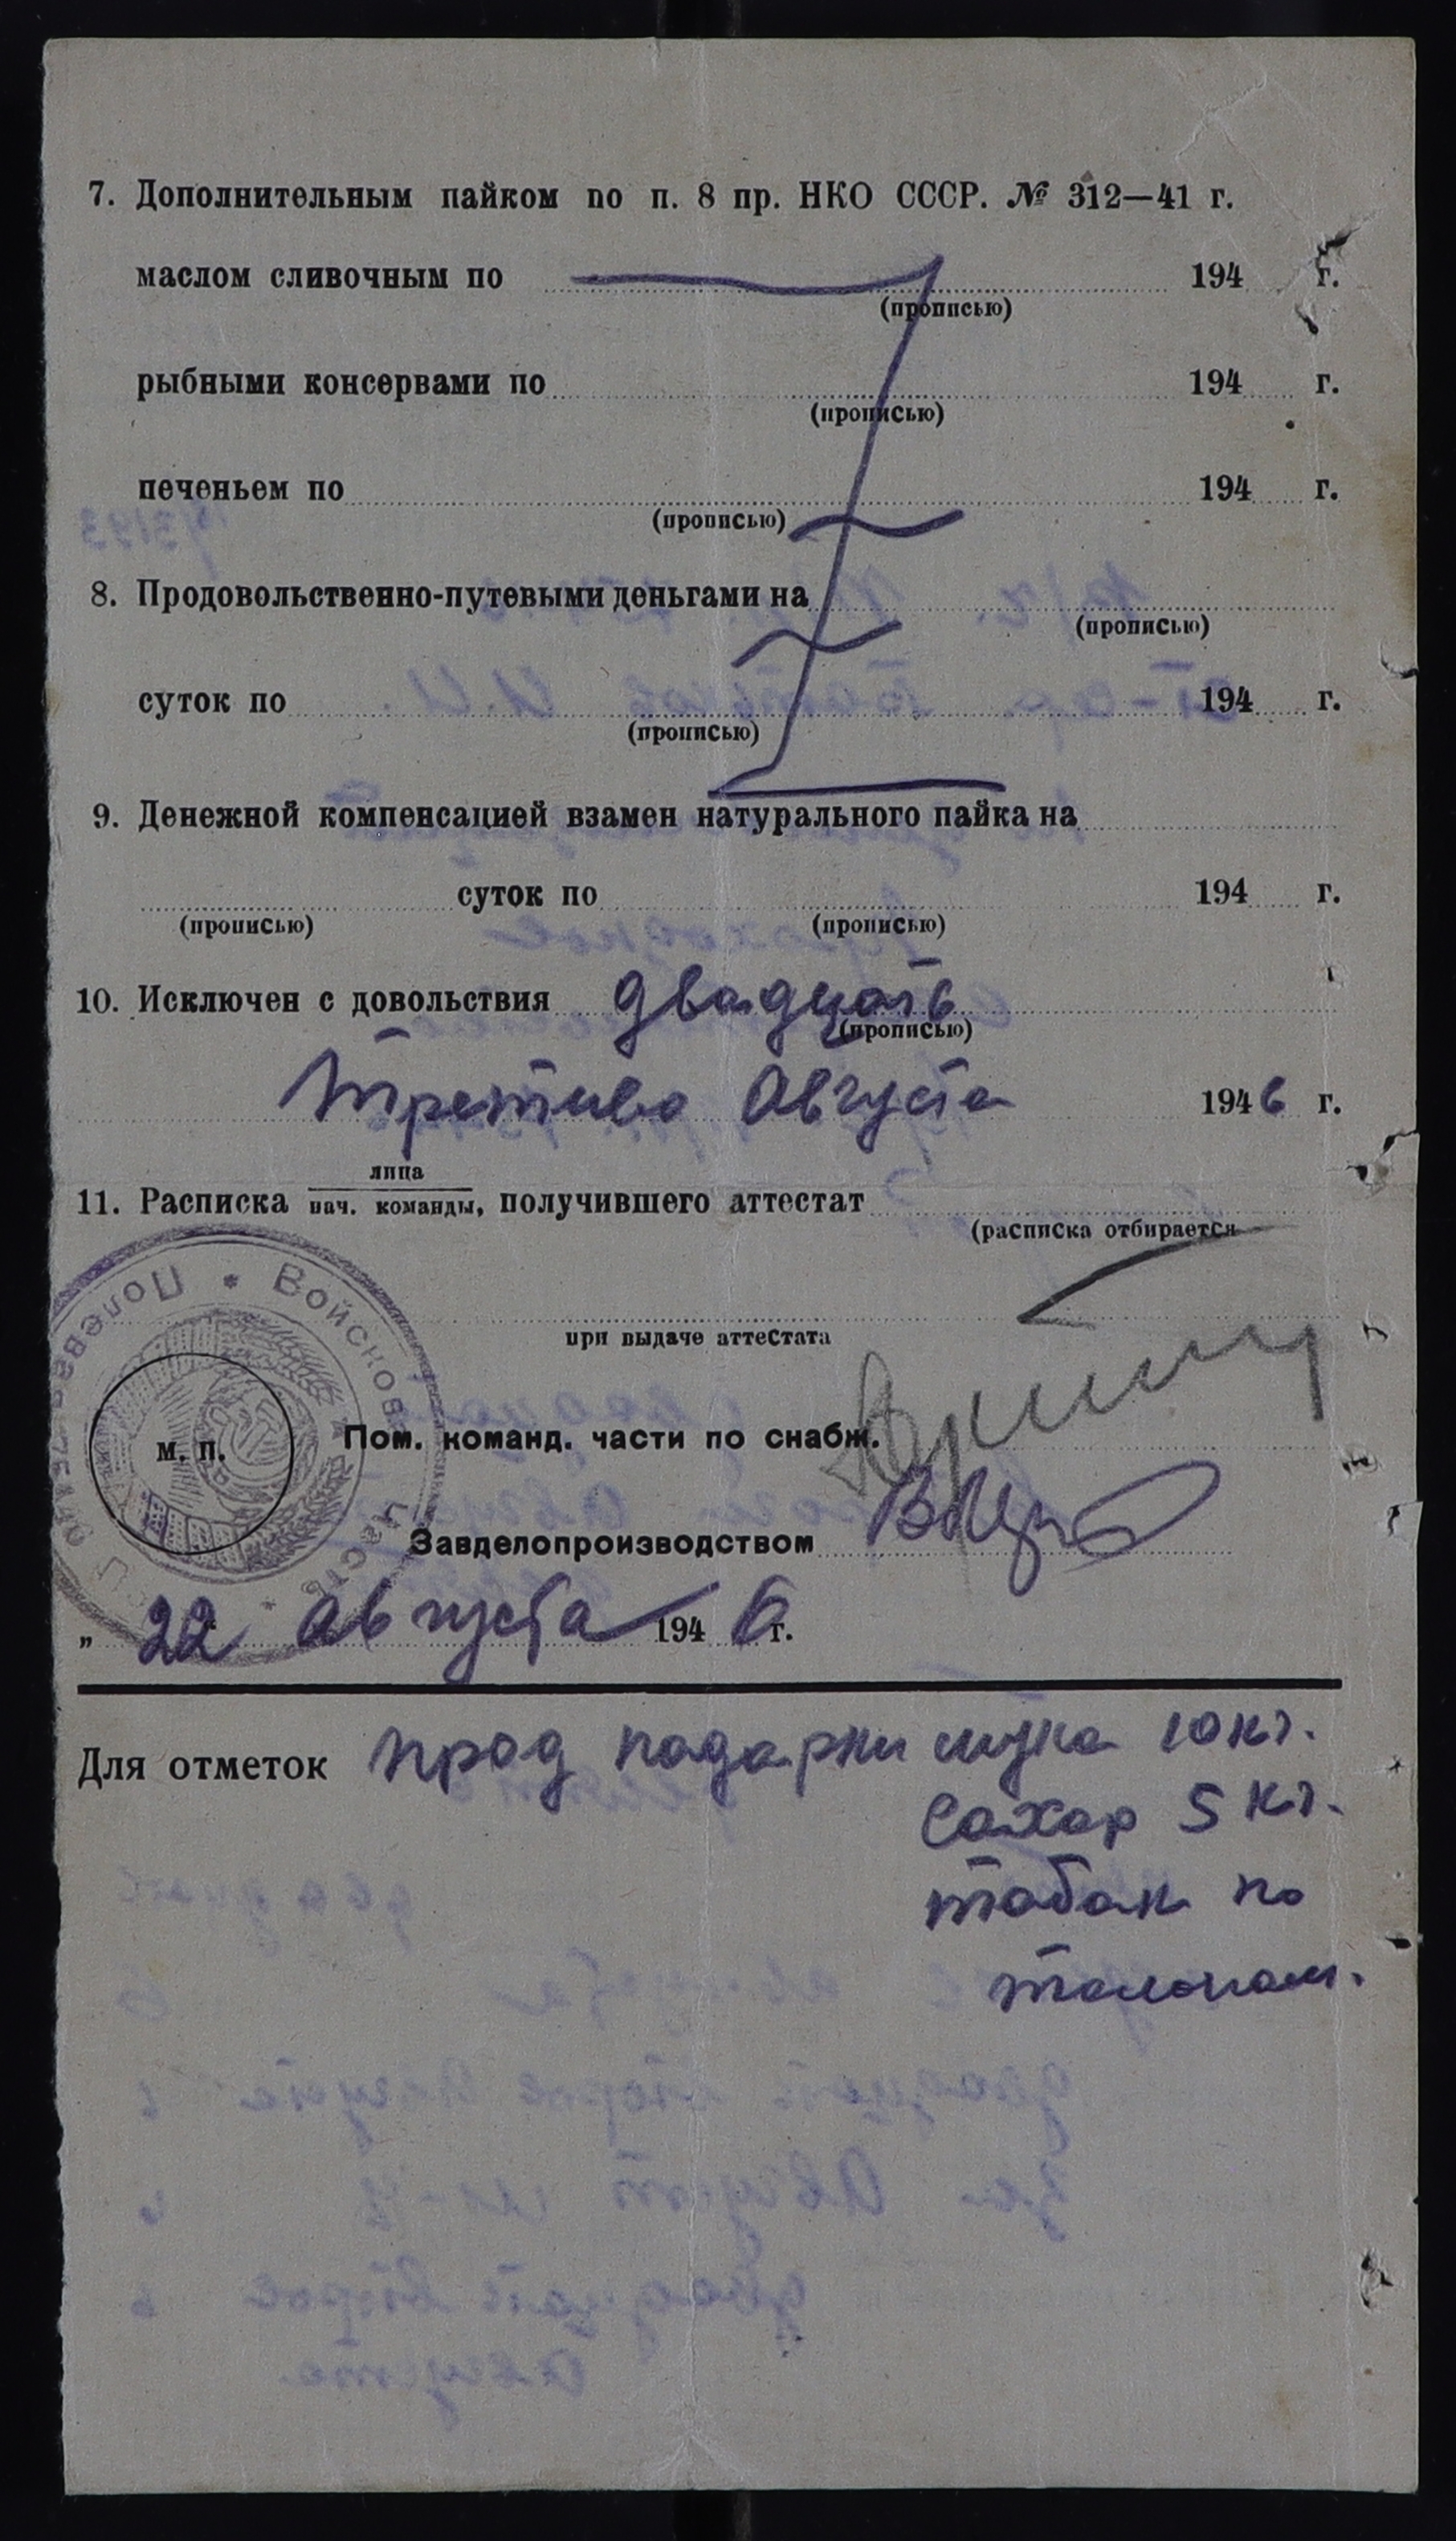 7. Дополнительным пайком по п. 8 пр. НКО СССР. № 312—41 г.
маслом сливочным по 194 г.
(прописью)
рыбными консервами по 194 г.
(прописью)
печеньем по 194 г.
(прописью)
8. Продовольственно-путевыми деньгами на
(прописью)
суток по 194 г.
(прописью)
9. Денежной компенсацией взамен натурального пайка на
суток по 194 г.
(прописью) (прописью)
10. Исключен с довольствия двадцать
(прописью)
Третиво Августа 1946 г.
11. Расписка лица
нач. команды, получившего аттестат
(расписка отбирается
при выдаче аттестата
Полевая * Войсков
м. п.
Пом. команд. части по снабж.
Завделопроизводством
„ 22 августа 1946 г.
Для отметок прод подарки мука 10 кг.
Сахар 5 кг.
табак по
талонам.